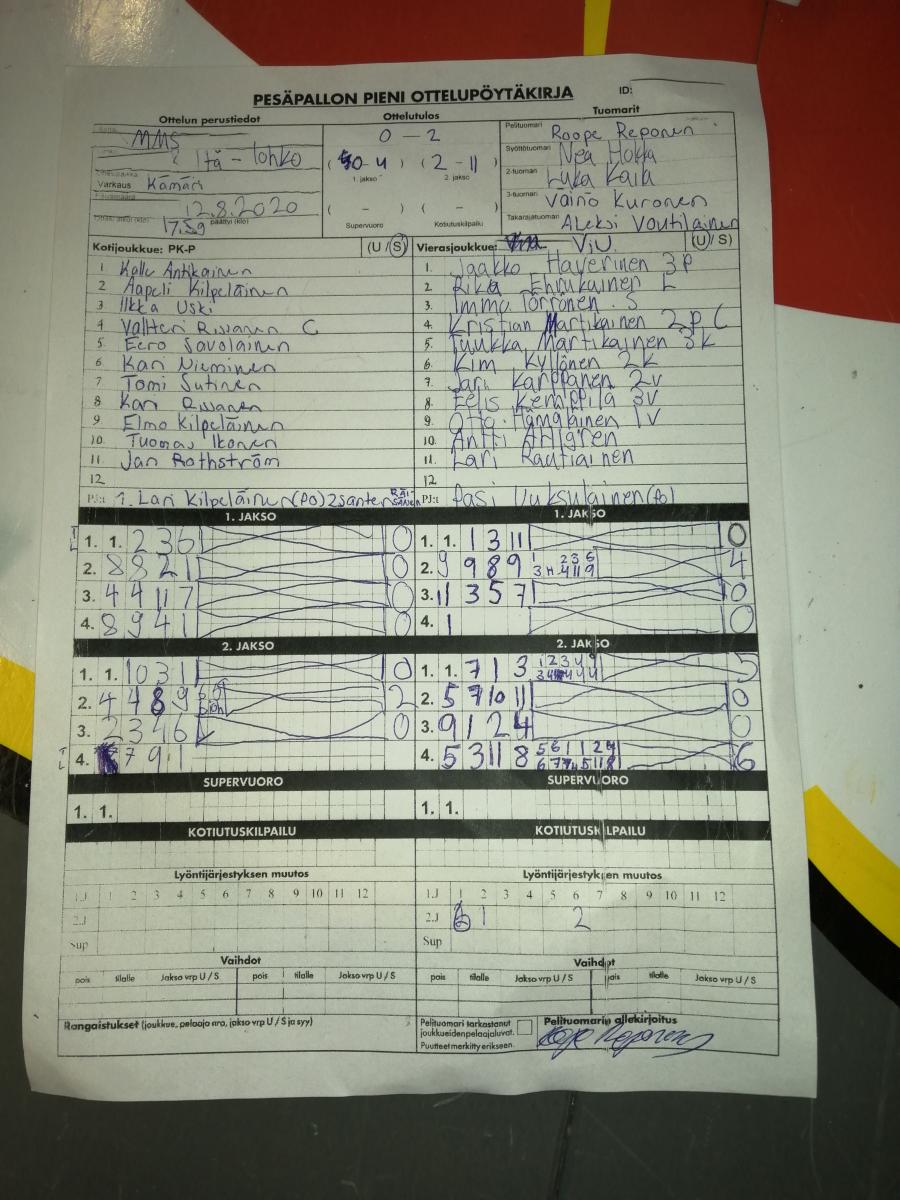 PESÄPALLON PIENI OTTELUPÖYTÄKIRJA
ID:
Ottelun perustiedot
Ottelutulos
Tuomarit
MMS
Itä - lohko
Varkaus Kämäri
12.8.2020
17.59 päättyi (klo)
0 - 2
( 0-4 ) ( 2-11 )
1. jakso 2. jakso
( - ) ( - )
Supervuoro Kotiutuskilpailu
Pelituomari Roope Reponen
Syöttötuomari Nea Hokka
2-tuomari Luka Kaila
3-tuomari Väinö Kuronen
Takarajatuomari Aleksi Voutilainen
Kotijoukkue: PK-P (U / S)
1 Kalle Antikainen
2 Aapeli Kilpeläinen
3 Ilkka Uski
4 Valtteri Rissanen C
5 Eero Savolainen
6 Kari Nieminen
7 Tomi Sutinen
8 Kari Rissanen
9 Elmo Kilpeläinen
10 Tuomas Ikonen
11 Jan Rothström
12
PJ:t 1. Lari Kilpeläinen (PO) 2 Santeri RÄISÄNEN
Vierasjoukkue: ViU (U / S)
1. Jaakko Haverinen 3p
2. Riku Ehrukainen L
3. Immo Törrönen S
4. Kristian Martikainen 2p C
5. Tuukka Martikainen 3k
6. Kim Kyllönen 2k
7. Jari Karppanen 2v
8. Eelis Kemppila 3v
9. Otto Hämäläinen 1v
10. Antti Ahlgren
11. Lari Rautiainen
12
PJ:t Pasi Vuksulainen (PO)
1. JAKSO
1. 1. 2 3 6 0
2. 8 8 2 1 0
3. 4 4 11 7 0
4. 8 9 4 1 0
1. JAKSO
1. 1. 1 3 11 0
2. 9 9 8 9 4
3. 11 3 5 7 0
4. 1 0
2. JAKSO
1. 1. 10 3 1 0
2. 4 4 8 9 2
3. 2 3 4 6 0
4. 7 9 1
2. JAKSO
1. 1. 7 1 3 5
2. 5 7 10 11 0
3. 9 1 2 4 0
4. 5 3 11 8 6
SUPERVUORO
1. 1.
SUPERVUORO
1. 1.
KOTIUTUSKILPAILU
KOTIUTUSKILPAILU
Lyöntijärjestyksen muutos
1.J 1 2 3 4 5 6 7 8 9 10 11 12
2.J
Sup
Lyöntijärjestyksen muutos
1.J 1 2 3 4 5 6 7 8 9 10 11 12
2.J 6 1 2
Sup
Vaihdot
pois tilalle Jakso vrp U / S pois tilalle Jakso vrp U / S
Vaihdot
pois tilalle Jakso vrp U / S pois tilalle Jakso vrp U / S
Rangaistukset (joukkue, pelaaja nro, jakso vrp U / S ja syy)
Pelituomari tarkastanut
joukkueidenpelaajaluvat.
Puutteet merkitty erikseen.
Pelituomarin allekirjoitus
Roope Reponen